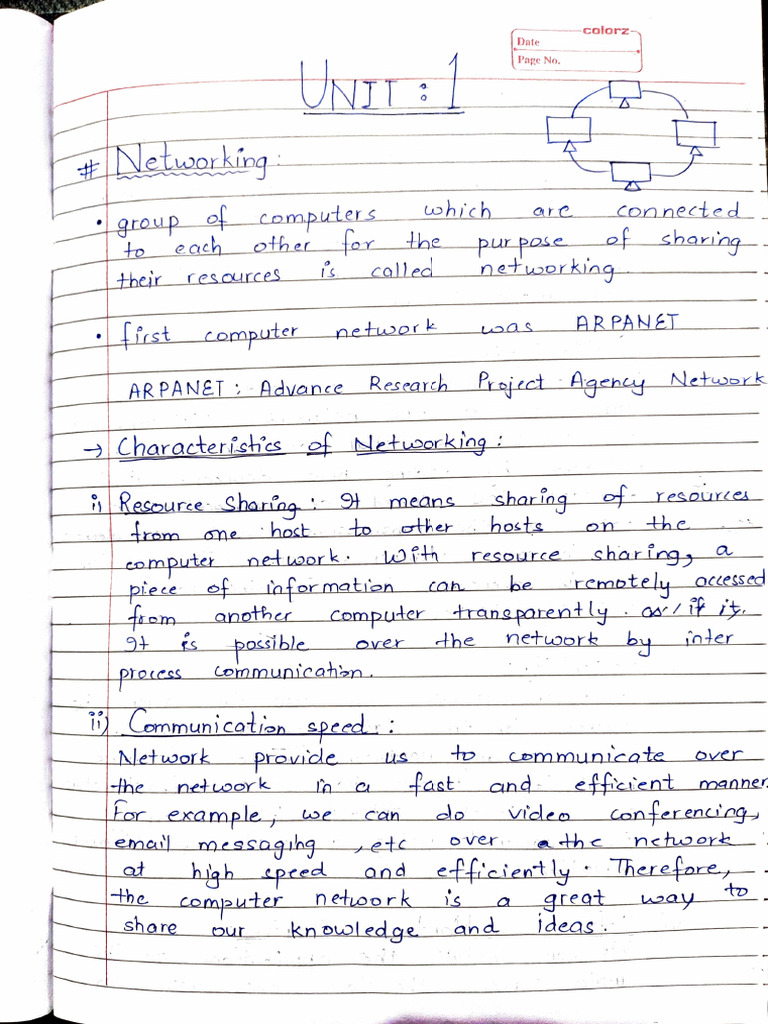 colorz
Date
Page No.
UNIT : 1
# Networking :
• group of computers which are connected
to each other for the purpose of sharing
their resources is called networking
• first computer network was ARPANET
ARPANET : Advance Research Project Agency Network
→ Characteristics of Networking :
i) Resource Sharing : It means sharing of resources
from one host to other hosts on the
computer network. With resource sharing, a
piece of information can be remotely accessed
from another computer transparently. as if it.
It is possible over the network by inter
process communication.
ii) Communication speed :
Network provide us to communicate over
the network in a fast and efficient manner.
For example, we can do video conferencing,
email messaging , etc over the network
at high speed and efficiently. Therefore,
the computer network is a great way to
share our knowledge and ideas.